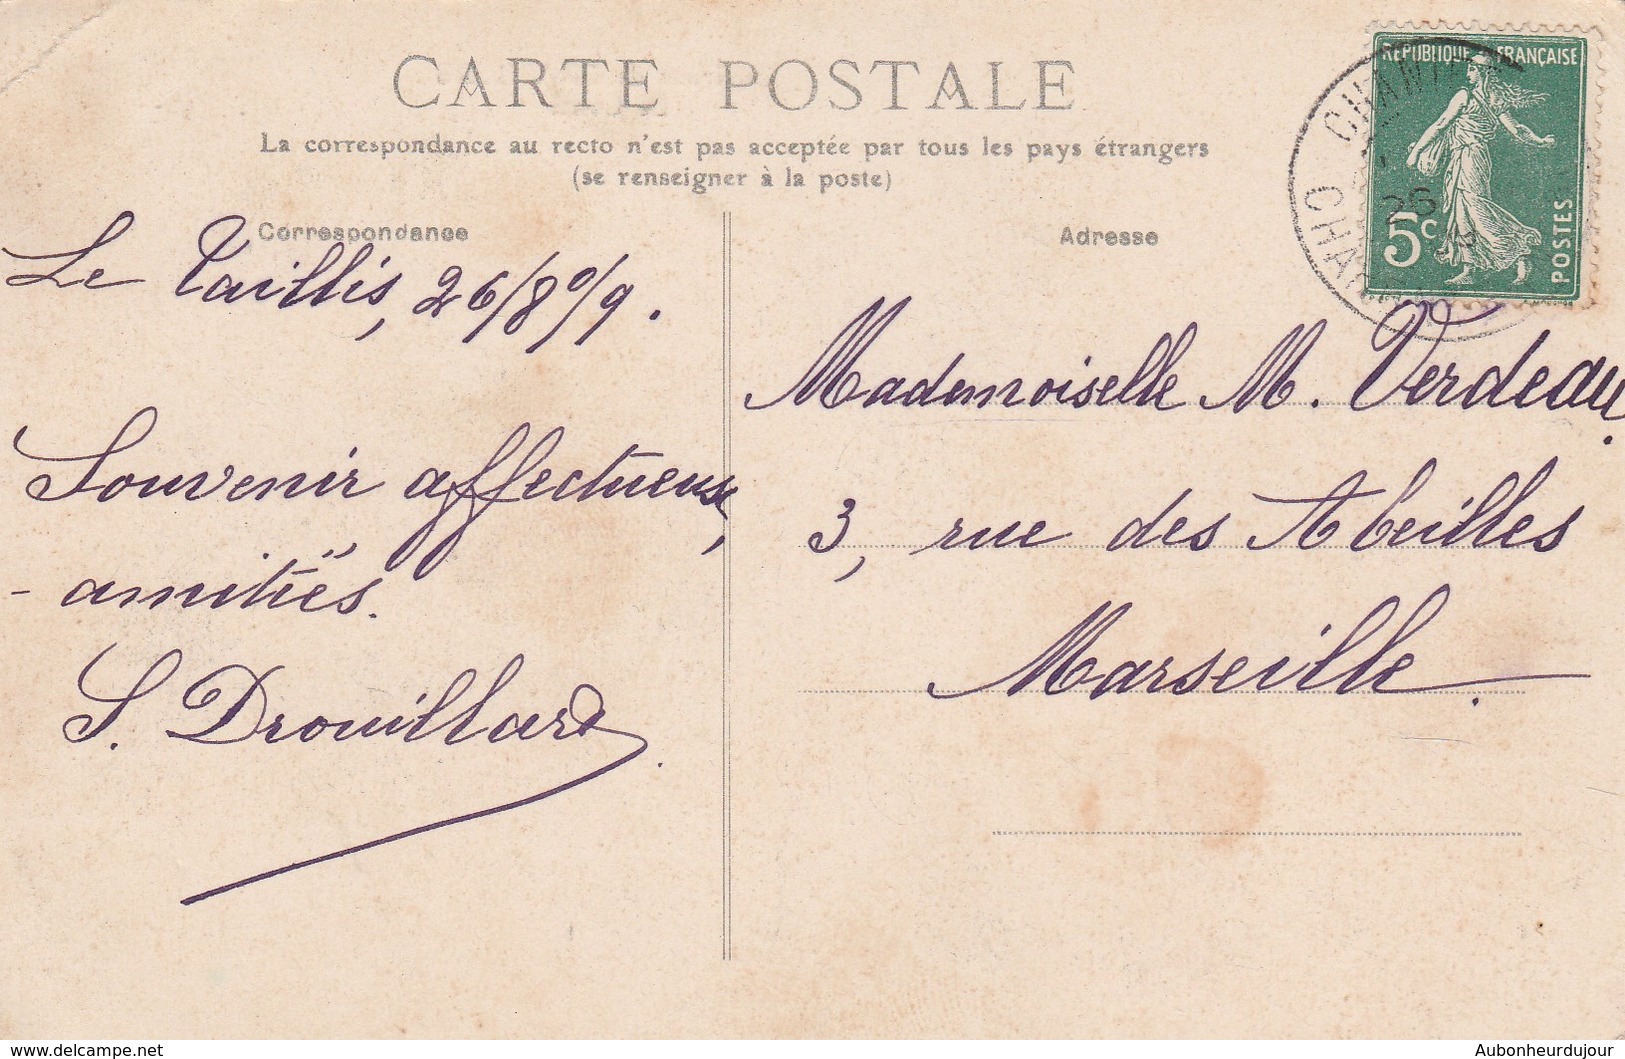 CARTE POSTALE
La correspondance au recto n'est pas acceptée par tous les pays étrangers
(se renseigner à la poste)
Correspondance
Le Taillis, 26/8 0/9.
Souvenir affectueux,
- amitiés.
S. Drouillard
Adresse
RÉPUBLIQUE FRANÇAISE
5c
POSTES
26
Mademoiselle M. Verdeau.
3, rue des Abeilles
Marseille.
www.delcampe.net
Aubonheurdujour